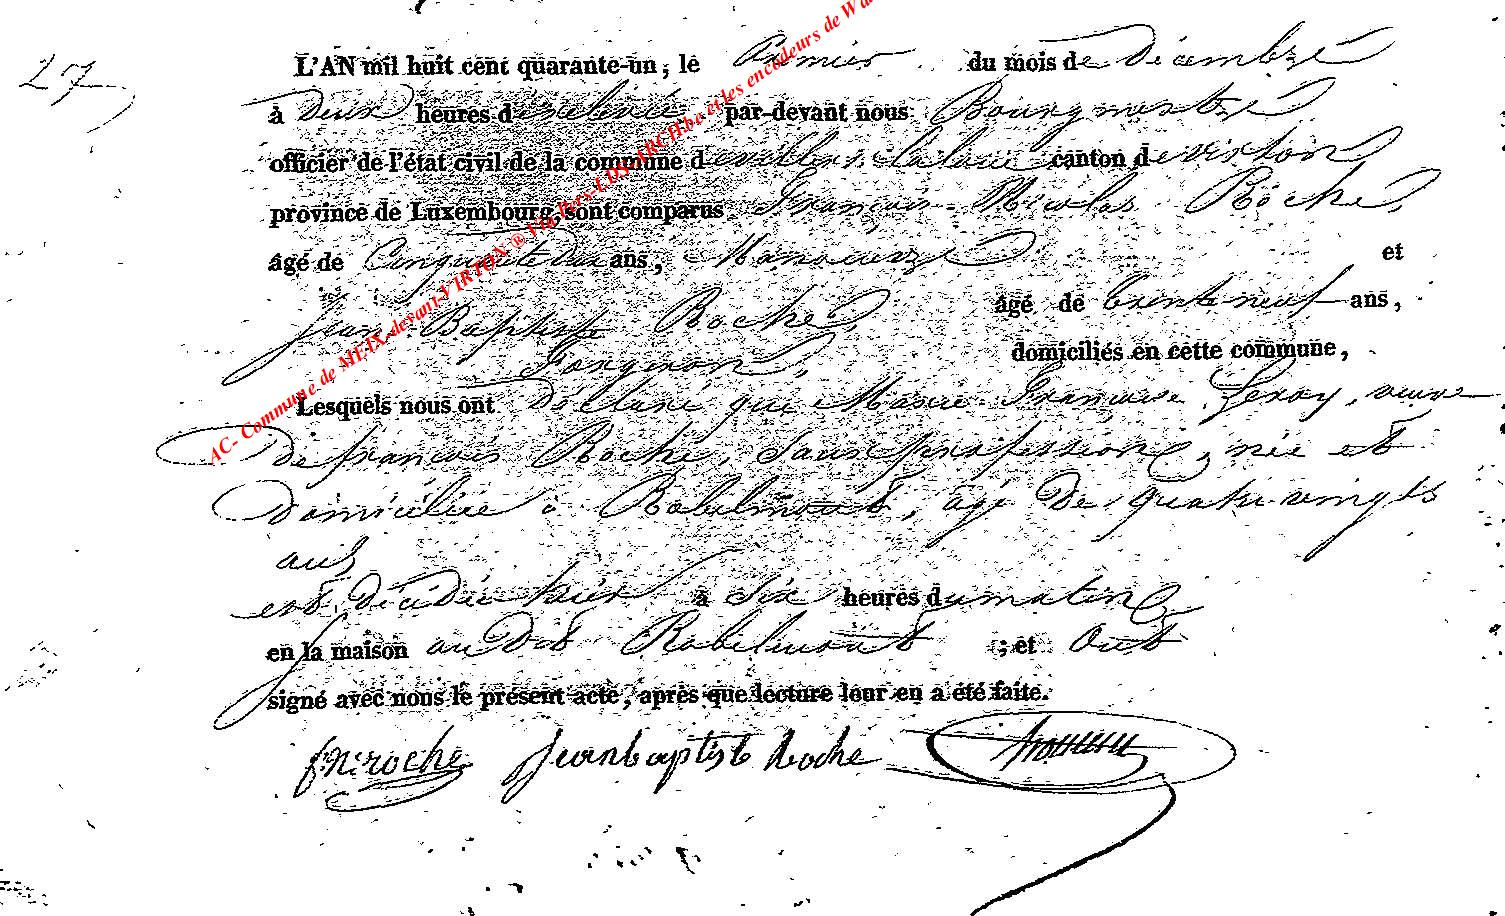 27
L'AN mil huit cent quarante-un, le Premier du mois de Décembre
à deux heures de relevée par-devant nous Bourgmestre
officier de l'état civil de la commune de villers la loue canton de virton
province de Luxembourg, sont comparus François Nicolas Roche,
âgé de Cinquante deux ans, Manoeuvre et
Jean Baptiste Roche, âgé de trente neuf ans,
domiciliés en cette commune,
Lesquels nous ont Déclaré que Marie Françoise Leroy, veuve
De françois Roche, Sans profession, née et
domiciliée à Robelmont, agé De quatre vingts
ans
est décédée hier à Six heures du matin
en la maison au Dit Robelmont ; et Ont
signé avec nous le présent acte, après que lecture leur en a été faite.
f.n. roche Jean baptiste Roche
AC- Commune de MEIX-devant-VIRTON ® Via Pers-LDS-ARCH.be et les encodeurs de